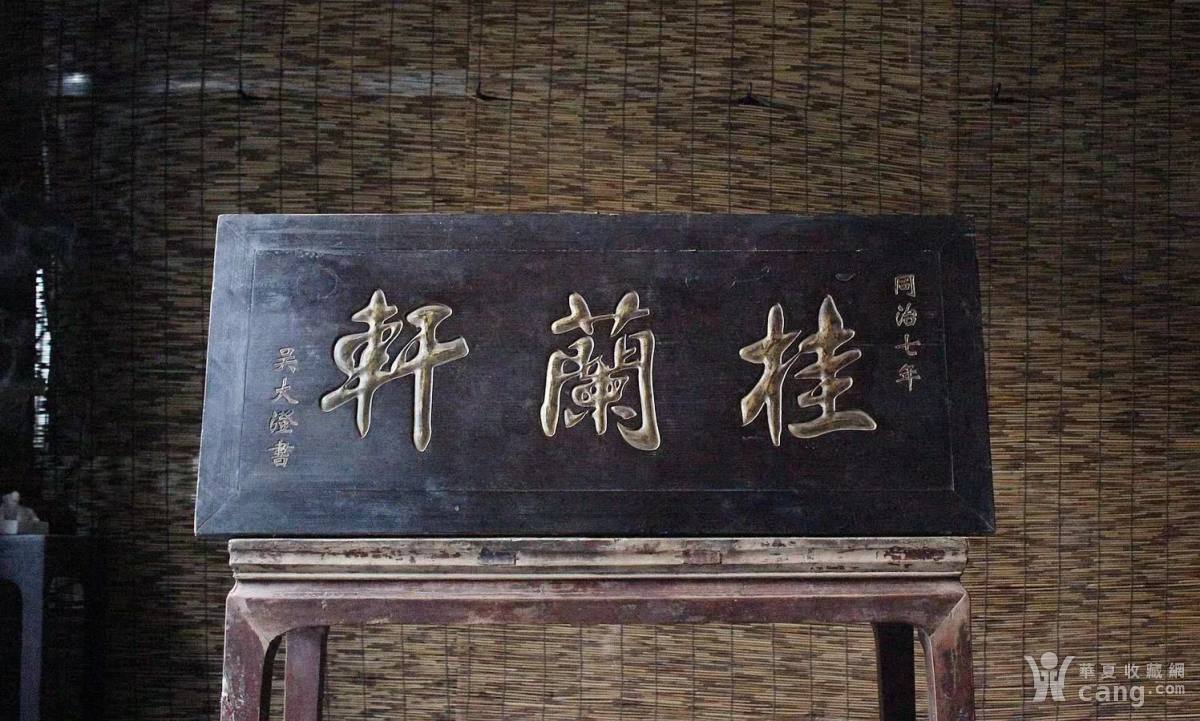 同治七年
桂蘭軒
吴大澄書
華夏收藏網
cang.com